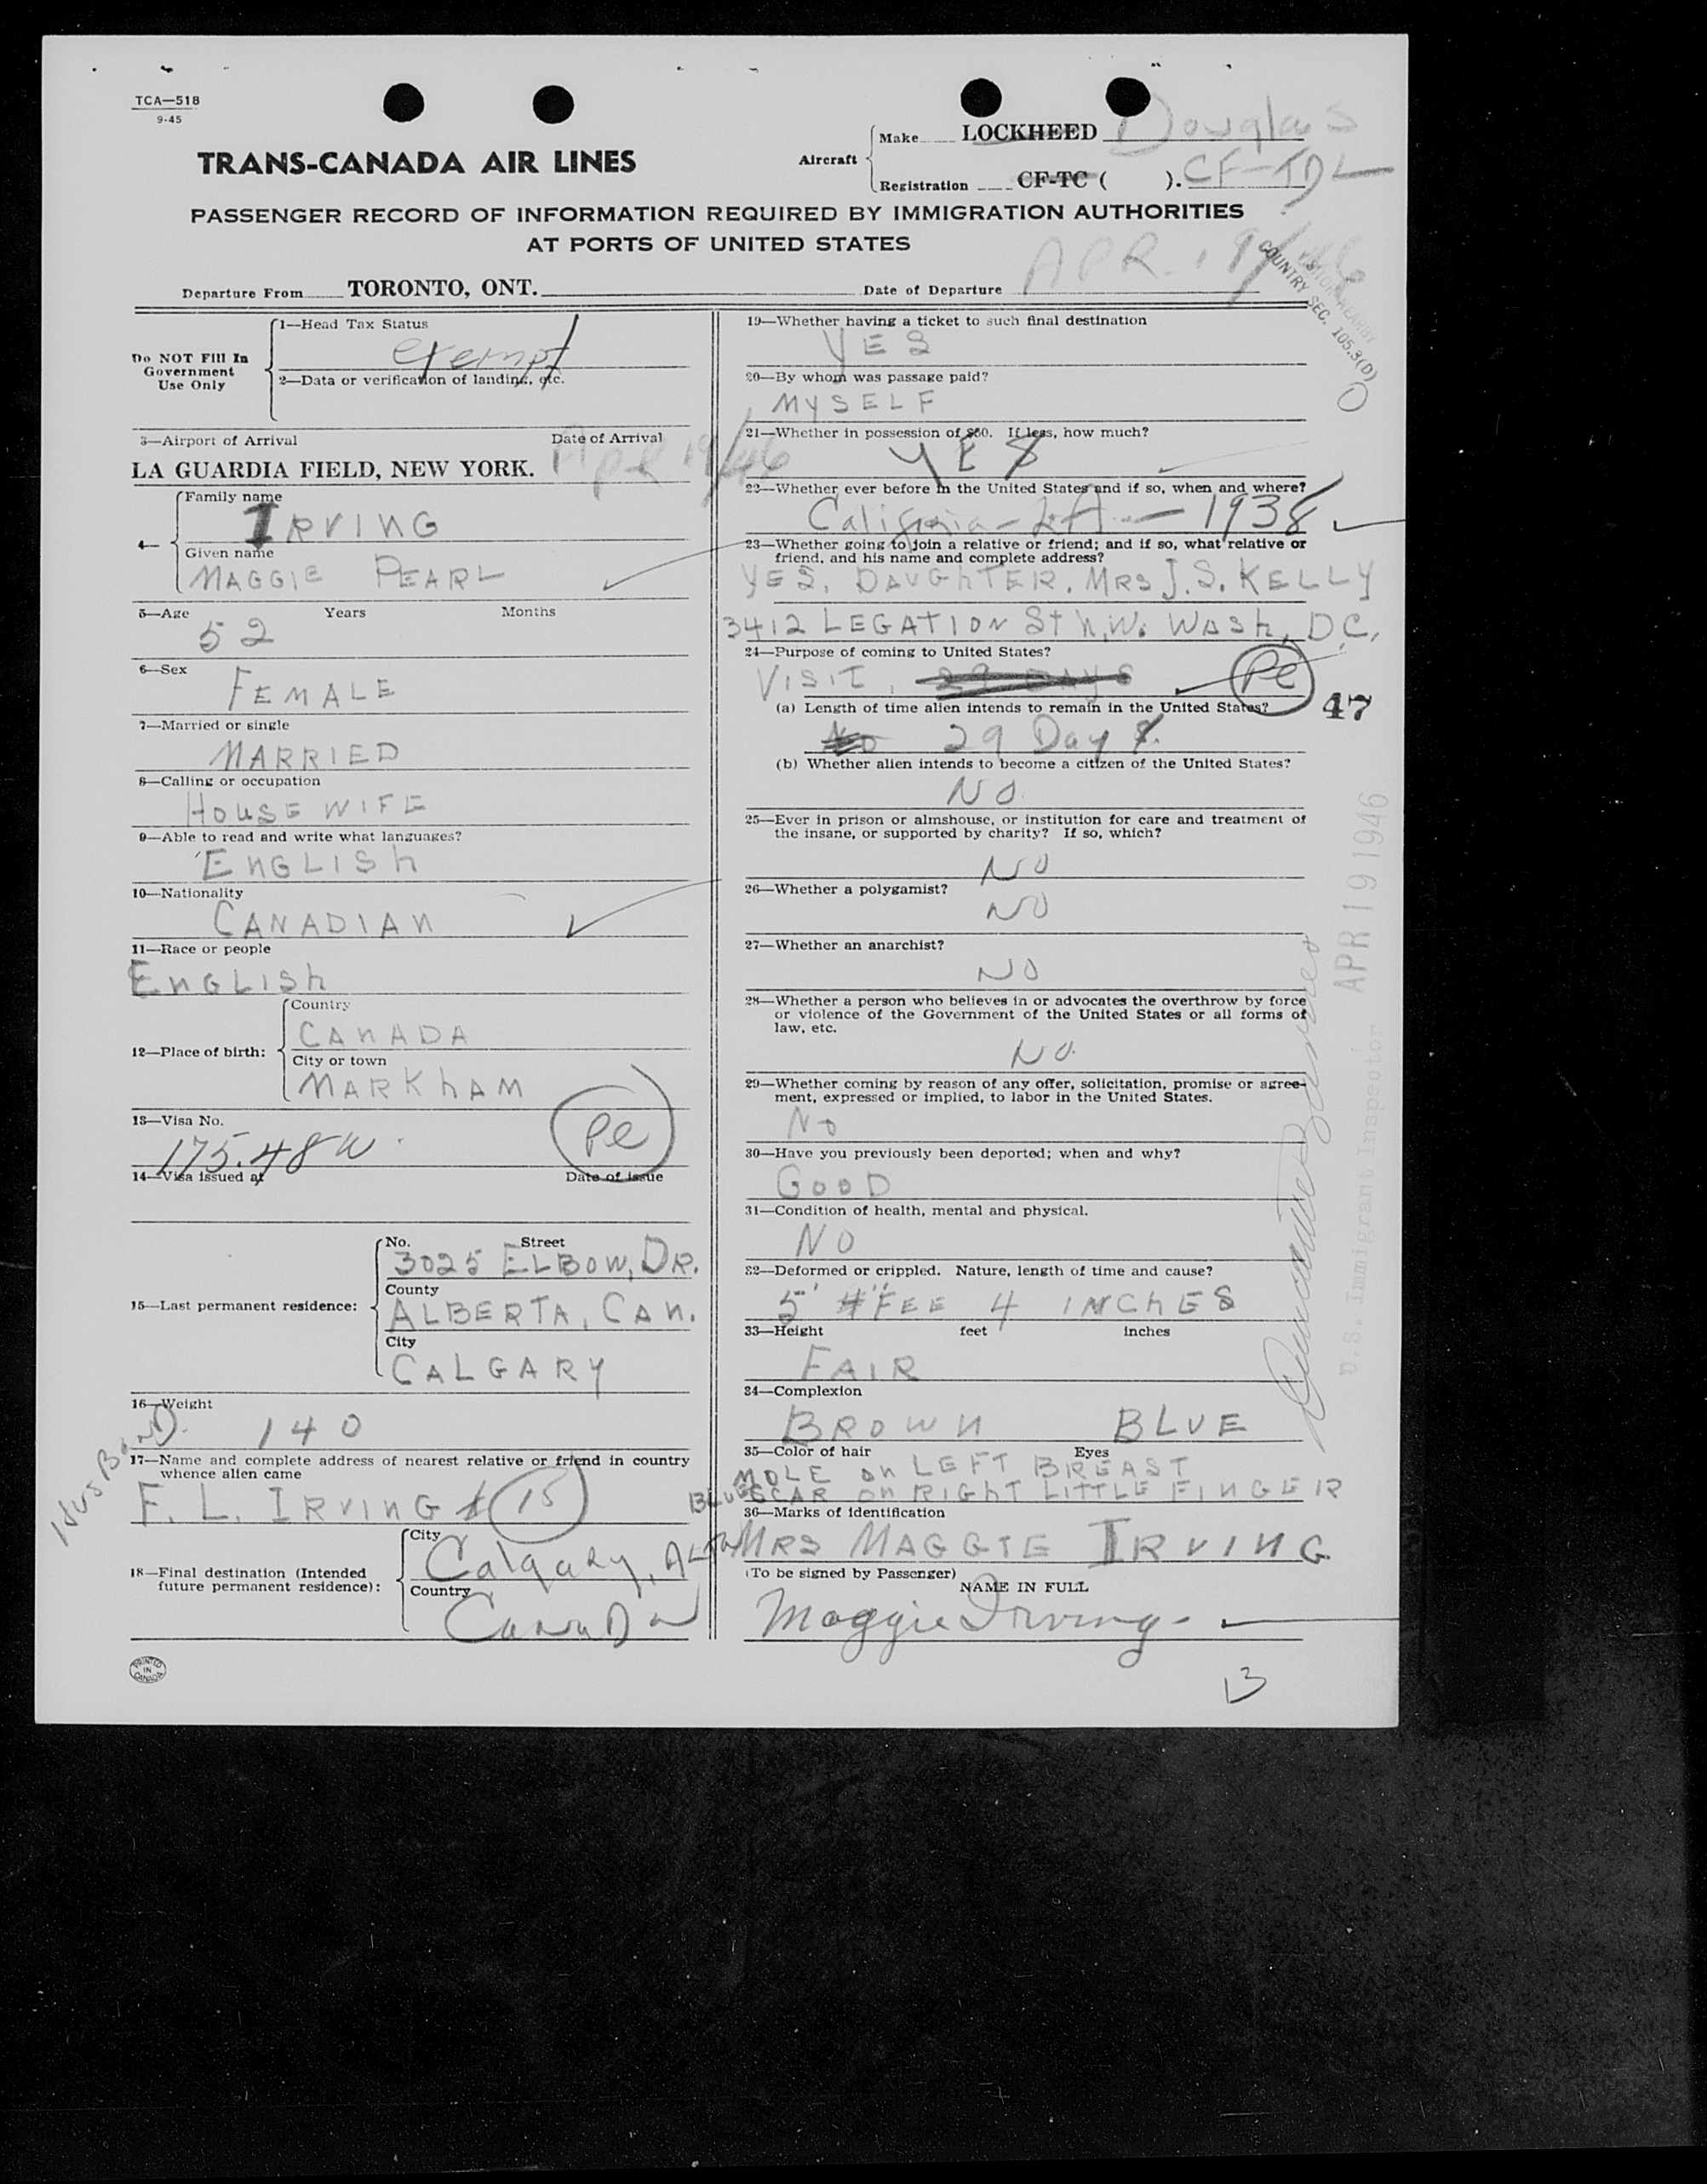 TCA—518
9-45
TRANS-CANADA AIR LINES
Aircraft
Make LOCKHEED Douglas
Registration CF-TC ( ). CF-TDL
PASSENGER RECORD OF INFORMATION REQUIRED BY IMMIGRATION AUTHORITIES
AT PORTS OF UNITED STATES
Departure From TORONTO, ONT. Date of Departure APR. 19/46
COUNTRY SEC. 105.3(D)
Do NOT Fill In
Government
Use Only
1—Head Tax Status
exempt
2—Data or verification of landing, etc.
3—Airport of Arrival Date of Arrival
LA GUARDIA FIELD, NEW YORK. Apr 19/46
4—
Family name
IRVING
Given name
MAGGIE PEARL
5—Age Years Months
52
6—Sex
FEMALE
7—Married or single
MARRIED
8—Calling or occupation
HOUSE WIFE
9—Able to read and write what languages?
ENGLISH
10—Nationality
CANADIAN
11—Race or people
ENGLISH
12—Place of birth:
Country
CANADA
City or town
MARKHAM
13—Visa No.
175.48W
Pe
14—Visa issued at Date of issue
15—Last permanent residence:
No. Street
3025 ELBOW, DR.
County
ALBERTA, CAN.
City
CALGARY
16—Weight
140
17—Name and complete address of nearest relative or friend in country
whence alien came
HUSBAND.
F. L. IRVING 15
18—Final destination (Intended
future permanent residence):
City
Calgary, ALTA
Country
CANADA
PRINTED
IN
CANADA
19—Whether having a ticket to such final destination
YES
20—By whom was passage paid?
MYSELF
21—Whether in possession of $60. If less, how much?
YES
22—Whether ever before in the United States and if so, when and where?
California - LA — 1938
23—Whether going to join a relative or friend; and if so, what relative or
friend, and his name and complete address?
YES. DAUGHTER. MRS J. S. KELLY
3412 LEGATION St N.W. WASH, D.C,
24—Purpose of coming to United States?
VISIT, 29 DAYS
Pe
47
(a) Length of time alien intends to remain in the United States?
No 29 Days.
(b) Whether alien intends to become a citizen of the United States?
NO.
25—Ever in prison or almshouse, or institution for care and treatment of
the insane, or supported by charity? If so, which?
NO
26—Whether a polygamist?
NO
27—Whether an anarchist?
NO
28—Whether a person who believes in or advocates the overthrow by force
or violence of the Government of the United States or all forms of
law, etc.
NO.
29—Whether coming by reason of any offer, solicitation, promise or agree-
ment, expressed or implied, to labor in the United States.
NO
30—Have you previously been deported; when and why?
GOOD
31—Condition of health, mental and physical.
NO
32—Deformed or crippled. Nature, length of time and cause?
5' FEE 4 INCHES
33—Height feet inches
FAIR
34—Complexion
BROWN BLUE
35—Color of hair Eyes
MOLE ON LEFT BREAST
BLUE SCAR ON RIGHT LITTLE FINGER
36—Marks of identification
MRS MAGGIE IRVING
(To be signed by Passenger)
NAME IN FULL
Maggie Irving
13
APR 19 1946
U.S. Immigrant Inspector